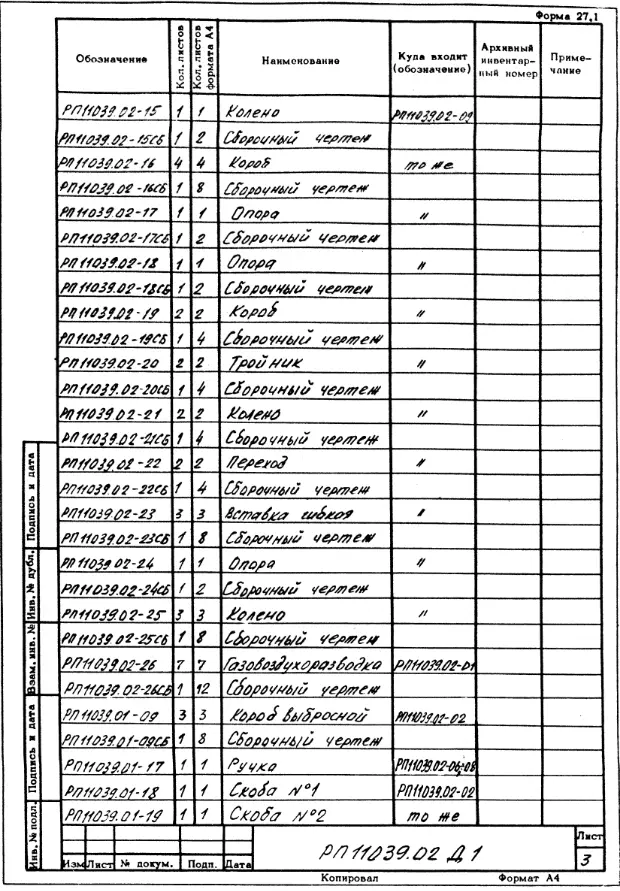 Форма 27,1
Обозначение Кол. листов Кол. листов формата А4 Наименование Куда входит (обозначение) Архивный инвентарный номер Примечание
РП11039.02-15 1 1 Колено РП11039.02-09
РП11039.02-15СБ 1 2 Сборочный чертеж
РП11039.02-16 4 4 Короб то же
РП11039.02-16СБ 1 8 Сборочный чертеж
РП11039.02-17 1 1 Опора "
РП11039.02-17СБ 1 2 Сборочный чертеж
РП11039.02-18 1 1 Опора "
РП11039.02-18СБ 1 2 Сборочный чертеж
РП11039.02-19 2 2 Короб "
РП11039.02-19СБ 1 4 Сборочный чертеж
РП11039.02-20 2 2 Тройник "
РП11039.02-20СБ 1 4 Сборочный чертеж
РП11039.02-21 2 2 Колено "
РП11039.02-21СБ 1 4 Сборочный чертеж
РП11039.02-22 2 2 Переход "
РП11039.02-22СБ 1 4 Сборочный чертеж
РП11039.02-23 3 3 Вставка гибкая "
РП11039.02-23СБ 1 8 Сборочный чертеж
РП11039.02-24 1 1 Опора "
РП11039.02-24СБ 1 2 Сборочный чертеж
РП11039.02-25 3 3 Колено "
РП11039.02-25СБ 1 8 Сборочный чертеж
РП11039.02-26 7 7 Газовоздухоразводка РП11039.02-01
РП11039.02-26СБ 1 12 Сборочный чертеж
РП11039.01-09 3 3 Короб выбросной РП11039.02-02
РП11039.01-09СБ 1 8 Сборочный чертеж
РП11039.01-17 1 1 Ручка РП11039.02-06;08
РП11039.01-18 1 1 Скоба №1 РП11039.02-02
РП11039.01-19 1 1 Скоба №2 то же
Инв. № подл. Подпись и дата Взам. инв. № Инв. № дубл. Подпись и дата
Изм Лист № докум. Подп. Дата
РП11039.02 Д1
Лист
3
Копировал Формат А4